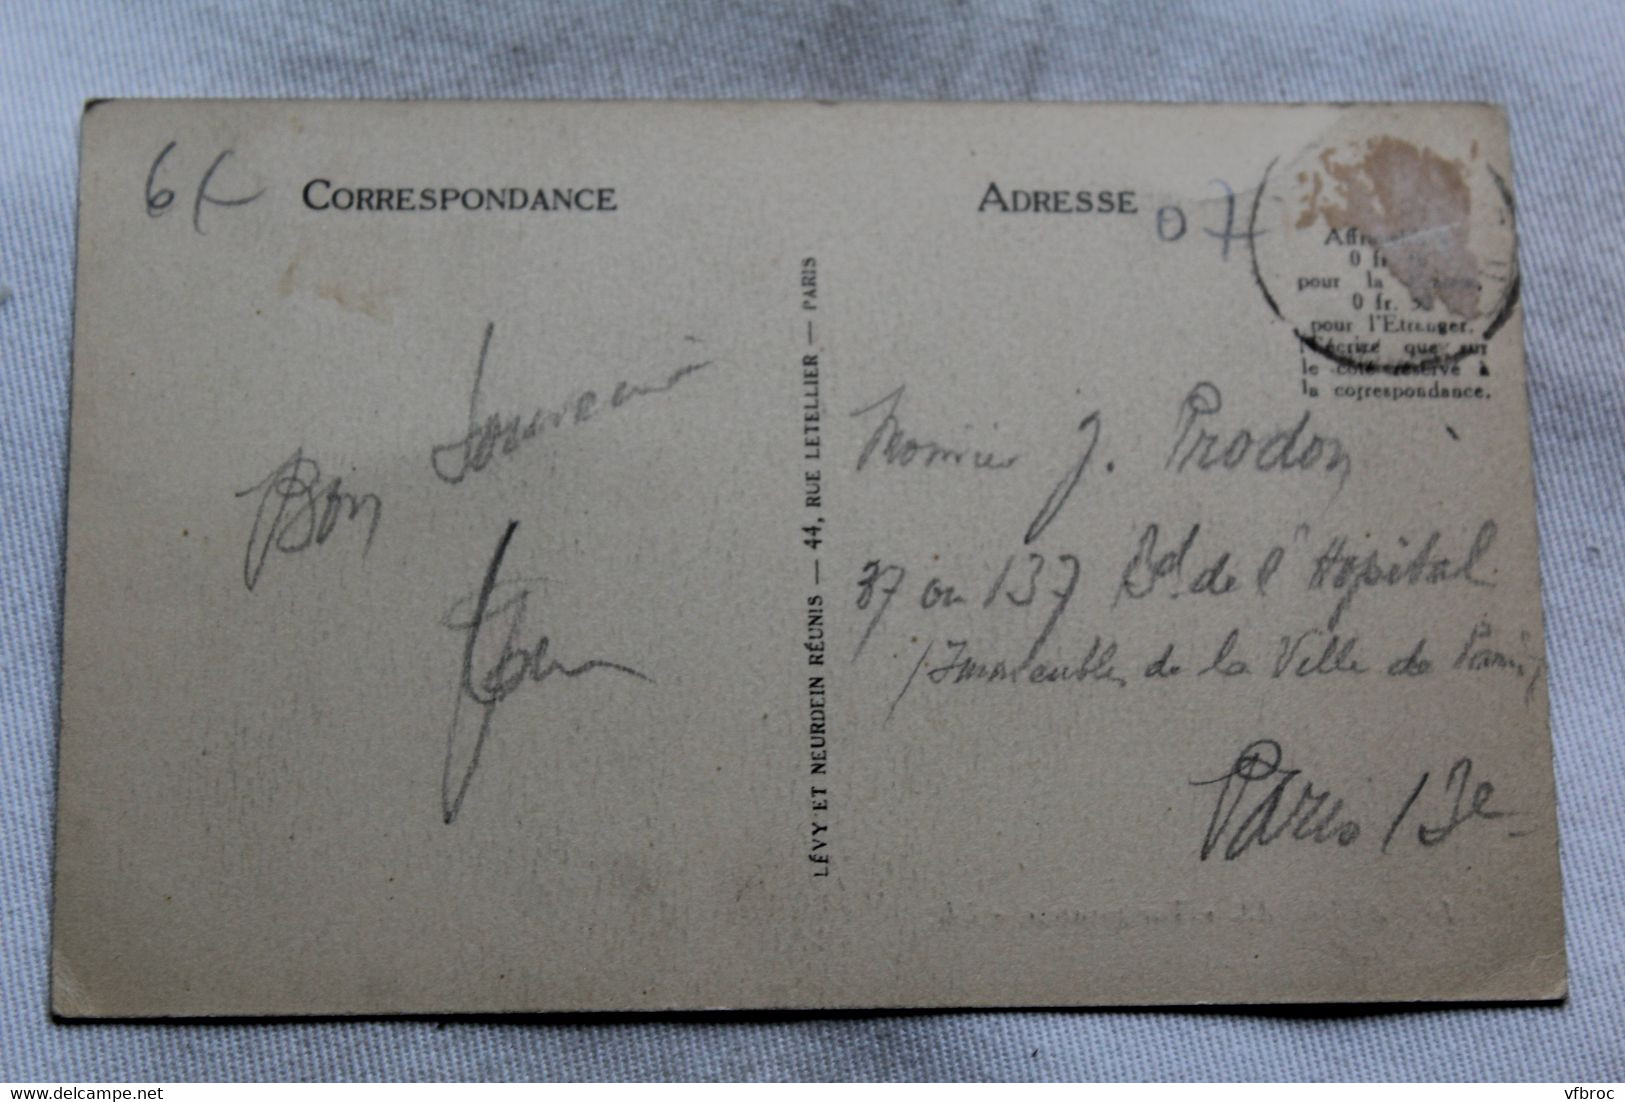 6f
CORRESPONDANCE
Bon Souvenir
LÉVY ET NEURDEIN RÉUNIS — 44, RUE LETELLIER — PARIS
ADRESSE
07
0 fr.
pour la
0 fr.
pour l'Etranger.
N'écrire que sur
le côté réservé à
la correspondance.
Monsieur J. Prodon
37 ou 137 Bd de l'Hopital
(Immeubles de la Ville de Paris)
Paris 13e
vfbroc